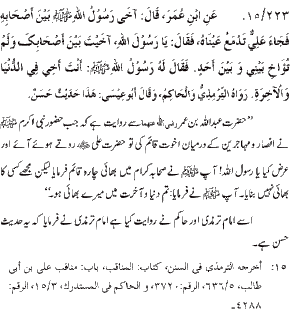 ۱۵/۲۲۳. عَنِ ابْنِ عُمَرَ، قَالَ: آخَى رَسُوْلُ اللهِ ﷺ بَيْنَ أَصْحَابِهِ
فَجَاءَ عَلِيٌّ تَدْمَعُ عَيْنَاهُ، فَقَالَ: يَا رَسُوْلَ اللهِ، آخَيْتَ بَيْنَ أَصْحَابِكَ وَلَمْ
تُؤَاخِ بَيْنِي وَ بَيْنَ أَحَدٍ. فَقَالَ لَهُ رَسُوْلُ اللهِ ﷺ: أَنْتَ أَخِي فِي الدُّنْيَا
وَالْآخِرَةِ. رَوَاهُ التِّرْمِذِيُّ وَالْحَاكِمُ، وَقَالَ أَبُوْعِيْسَى: هَذَا حَدِيْثٌ حَسَنٌ.
”حضرت عبداللہ بن عمر رضی اللہ عنھما سے روایت ہے کہ جب حضور نبی اکرم ﷺ
نے انصار و مہاجرین کے درمیان اخوت قائم کی تو حضرت علی روتے ہوئے آئے اور
عرض کیا یا رسول اللہ! آپ ﷺ نے صحابہ کرام میں بھائی چارہ قائم فرمایا لیکن مجھے کسی کا
بھائی نہیں بنایا۔ آپ ﷺ نے فرمایا: تم دنیا و آخرت میں میرے بھائی ہو۔“
اسے امام ترمذی اور حاکم نے روایت کیا ہے امام ترمذی نے فرمایا کہ یہ حدیث
حسن ہے۔
۱۵: أخرجه الترمذی فی السنن، کتاب: المناقب، باب: مناقب علی بن أبی
طالب، ۵/۶۳۶، الرقم: ۳۷۲۰، و الحاکم فی المستدرک، ۳/۱۵، الرقم:
۴۲۸۸۔